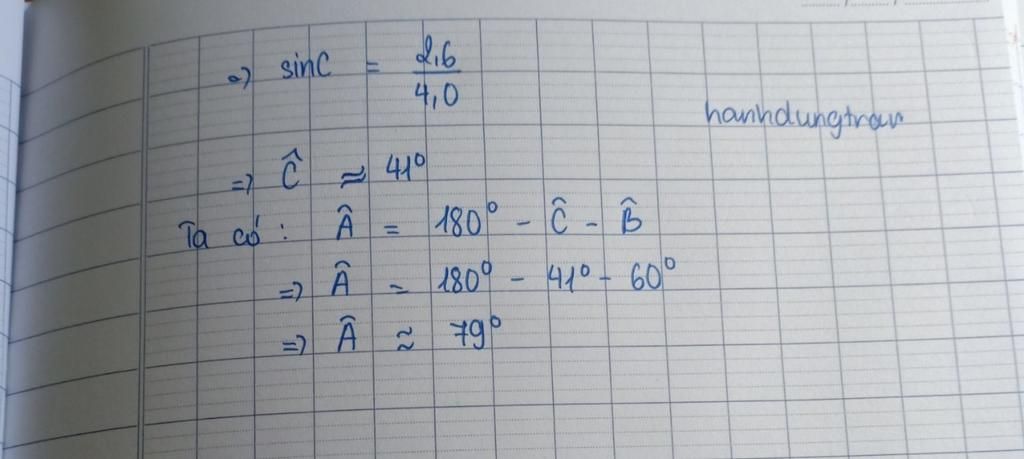 => sinC = 2,6 / 4,0
hanhdungtran
=> Ĉ ≈ 41°
Ta có: Â = 180° - Ĉ - B̂
=> Â = 180° - 41° - 60°
=> Â ≈ 79°